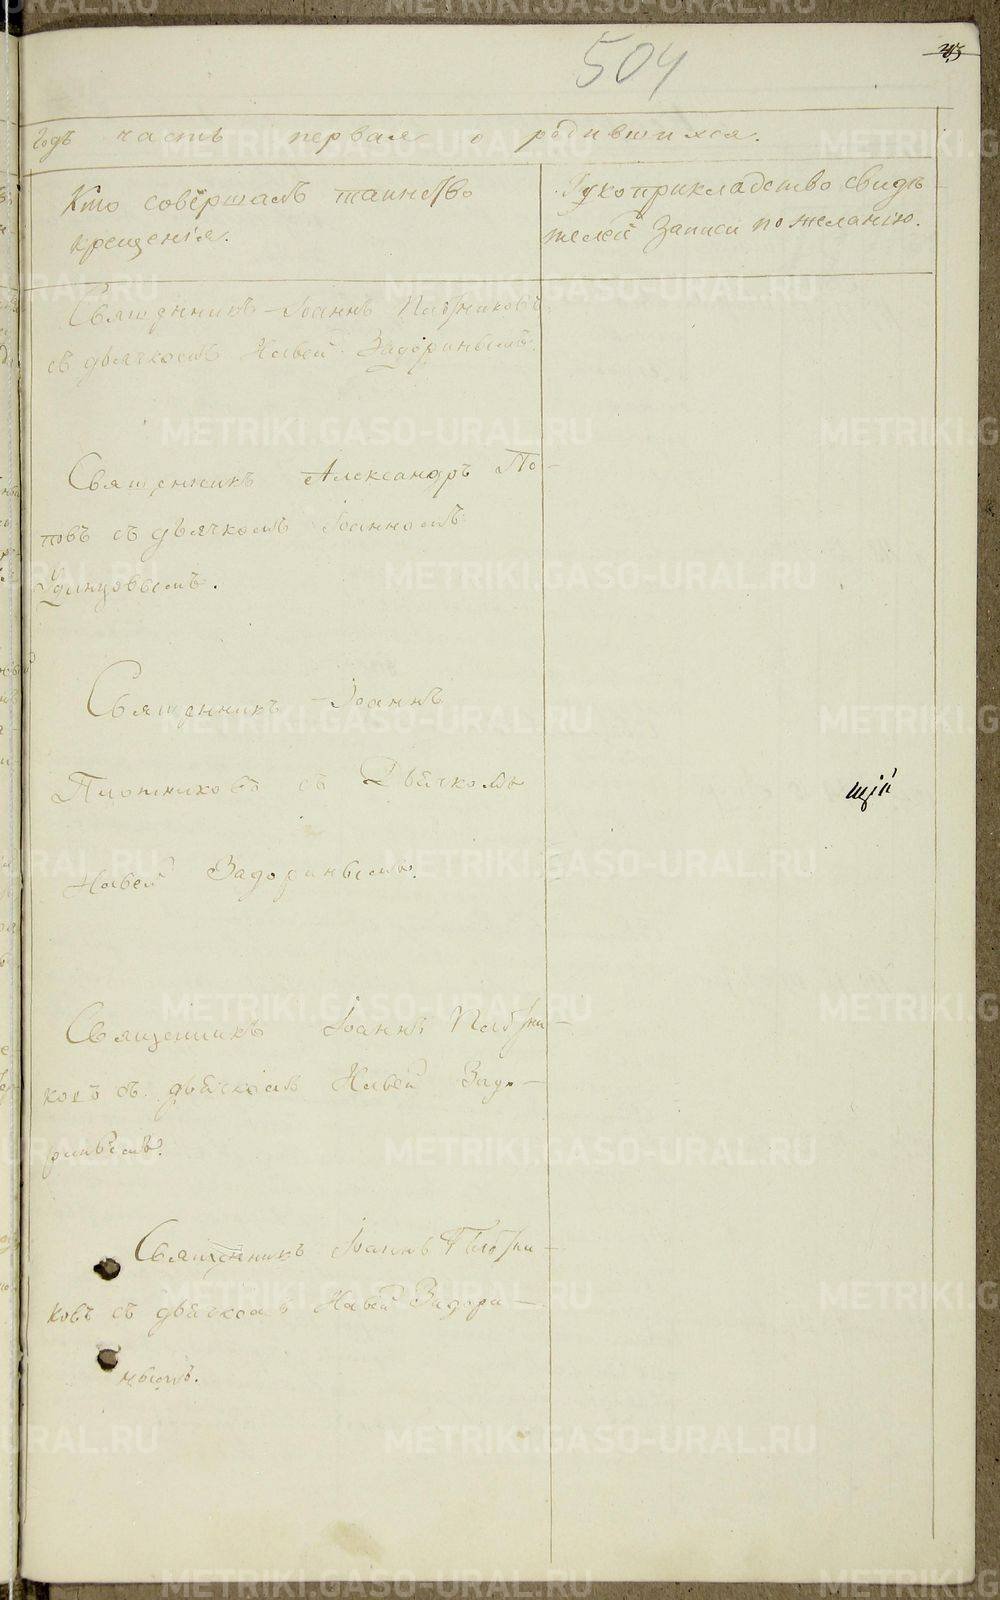 504
годъ часть первая о родившихся.
Кто совершалъ таинство
крещенія.
Рукоприкладство свидѣ-
телей записи по желанію.
Священникъ Іоаннъ Плотниковъ
съ дьячкомъ Задоринымъ.
Священникъ Александръ По-
повъ съ дьячкомъ Іоанномъ
Удинцовымъ.
Священникъ Іоаннъ
Плотниковъ съ Дьячкомъ
щій
Задоринымъ.
Священникъ Іоаннъ Плотни-
ковъ съ дьячкомъ Задо-
ринымъ.
Священникъ Іоаннъ Плотни-
ковъ съ дьячкомъ Задори-
нымъ.
METRIKI.GASO-URAL.RU